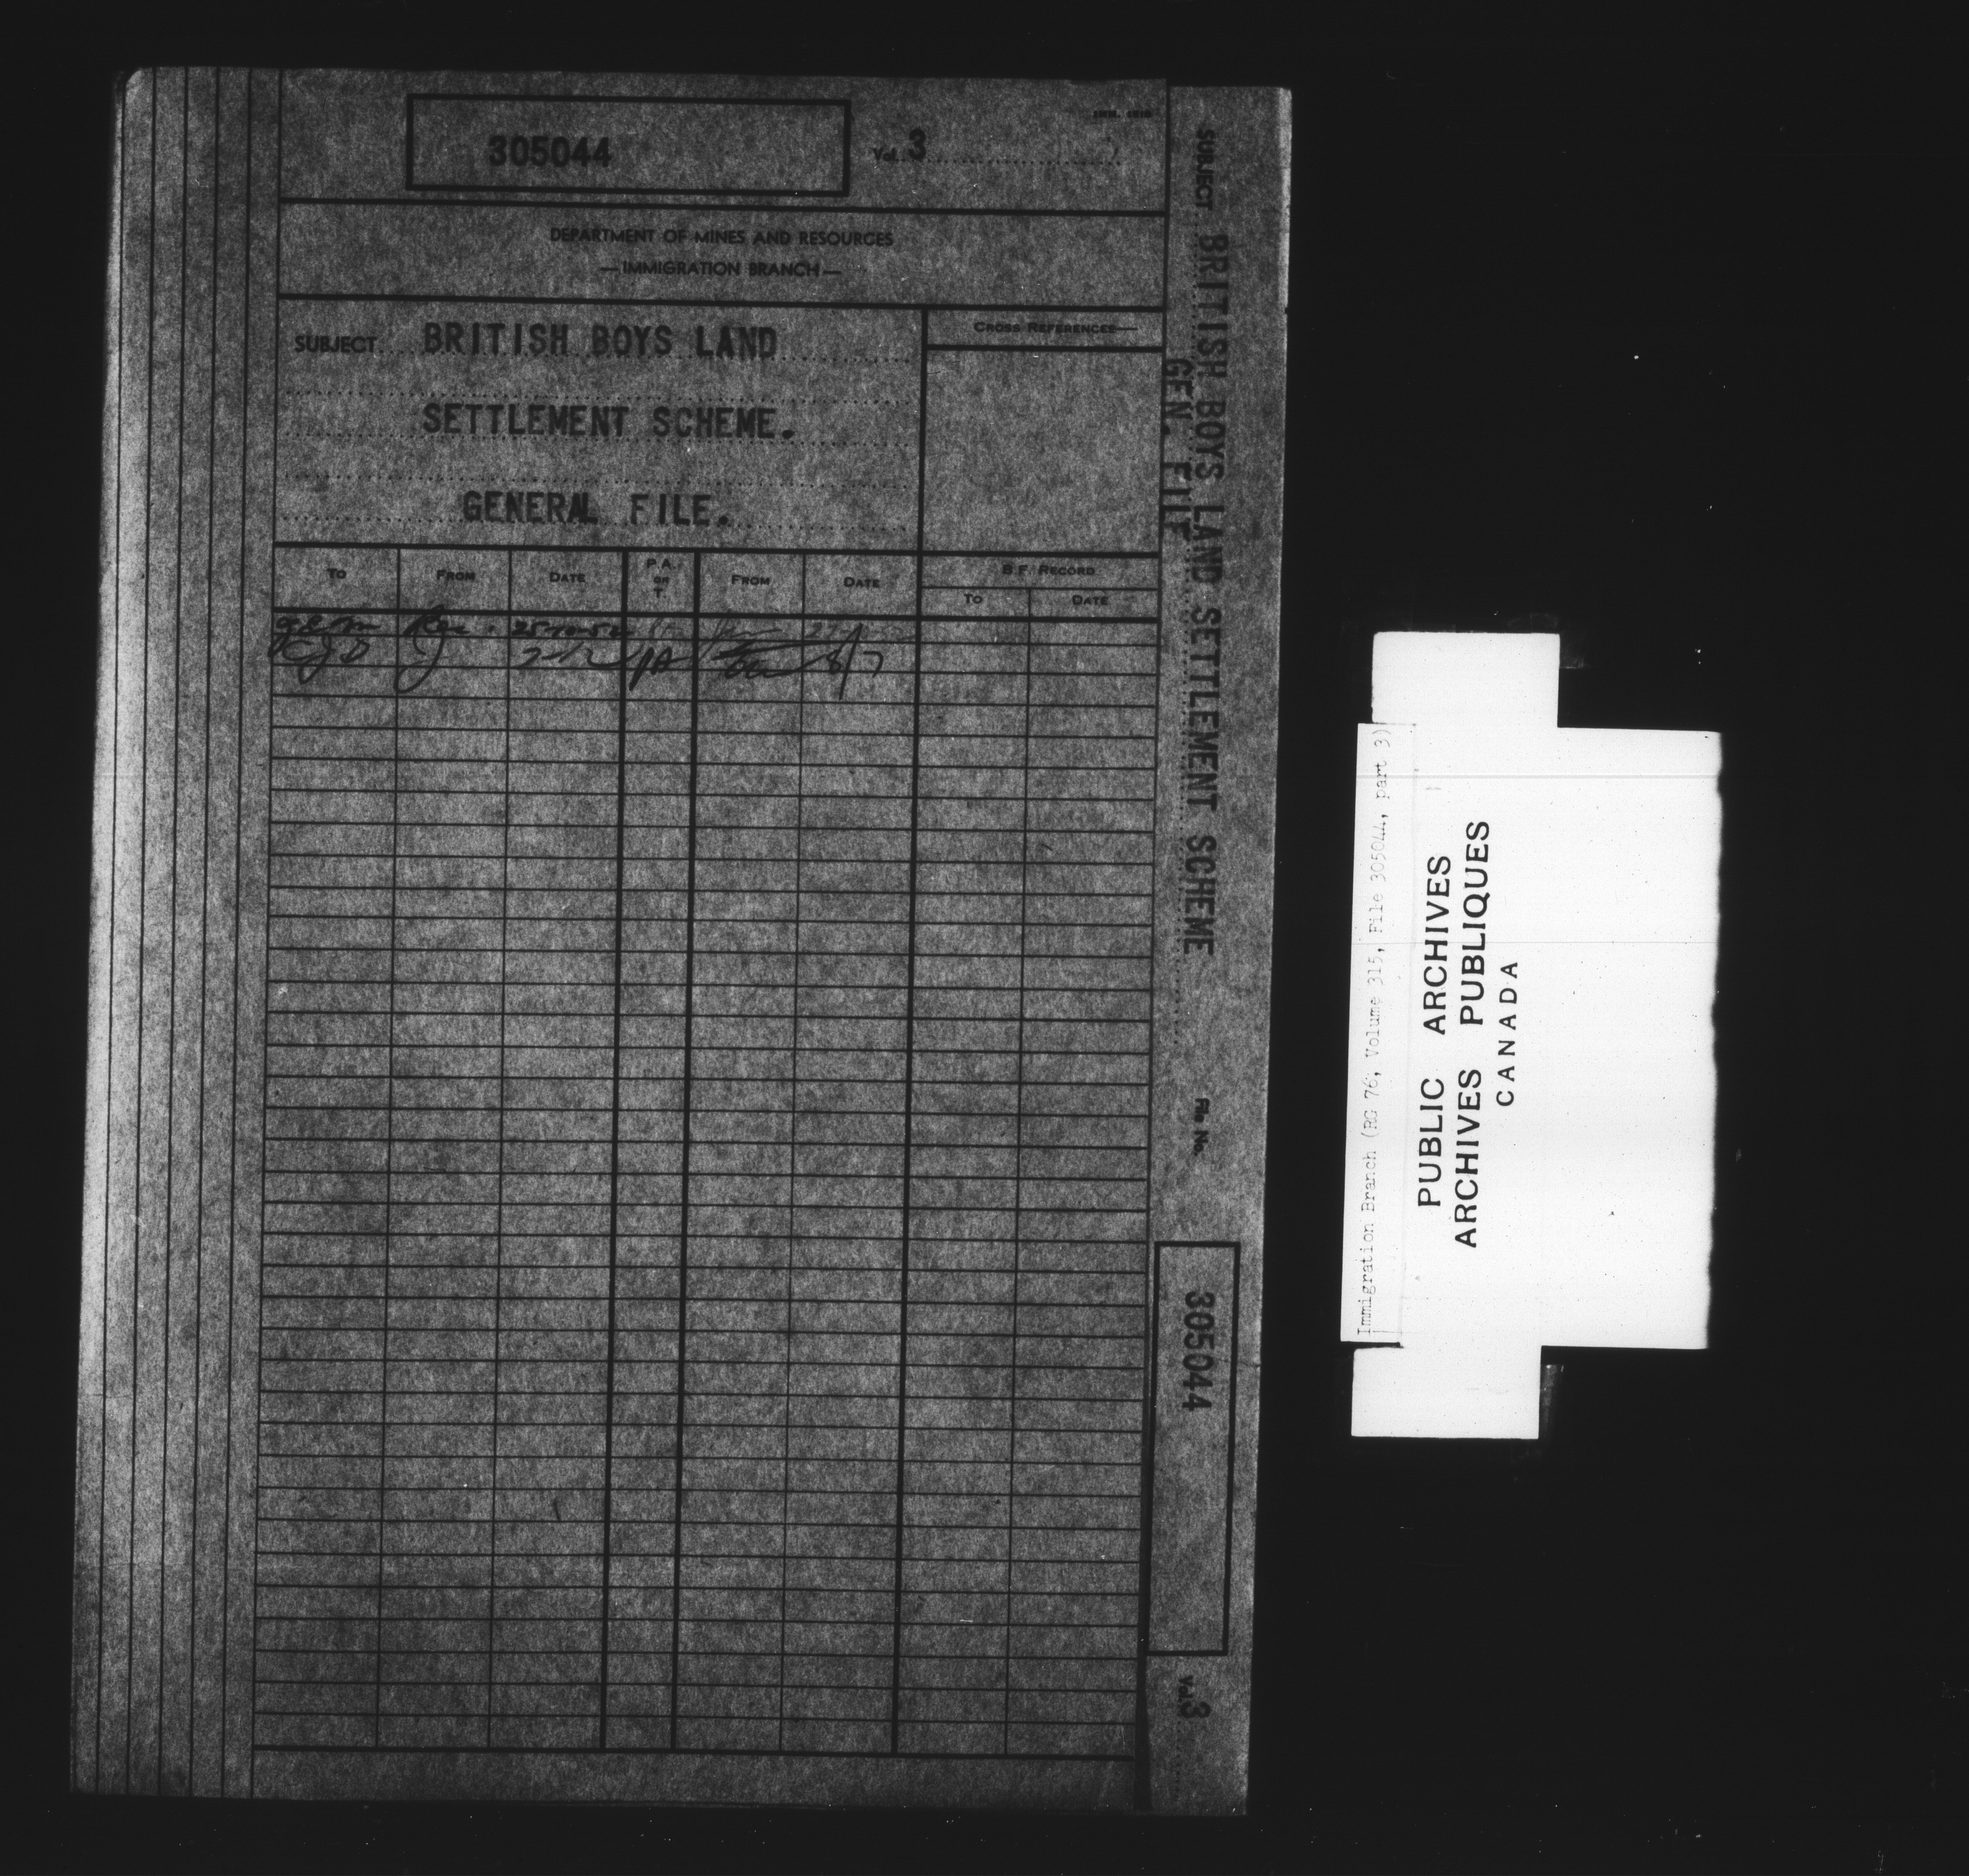 305044
Vol. 3
DEPARTMENT OF MINES AND RESOURCES
—IMMIGRATION BRANCH—
SUBJECT BRITISH BOYS LAND
SETTLEMENT SCHEME.
GENERAL FILE.
CROSS REFERENCES—
TO FROM DATE P.A. or T. FROM DATE
B.F. RECORD
TO DATE
25-10-50
PA
SUBJECT BRITISH BOYS LAND SETTLEMENT SCHEME
GEN. FILE
File No.
305044
Vol. 3
Immigration Branch (RG 76, Volume 315, File 305044, part 3)
PUBLIC ARCHIVES
ARCHIVES PUBLIQUES
CANADA